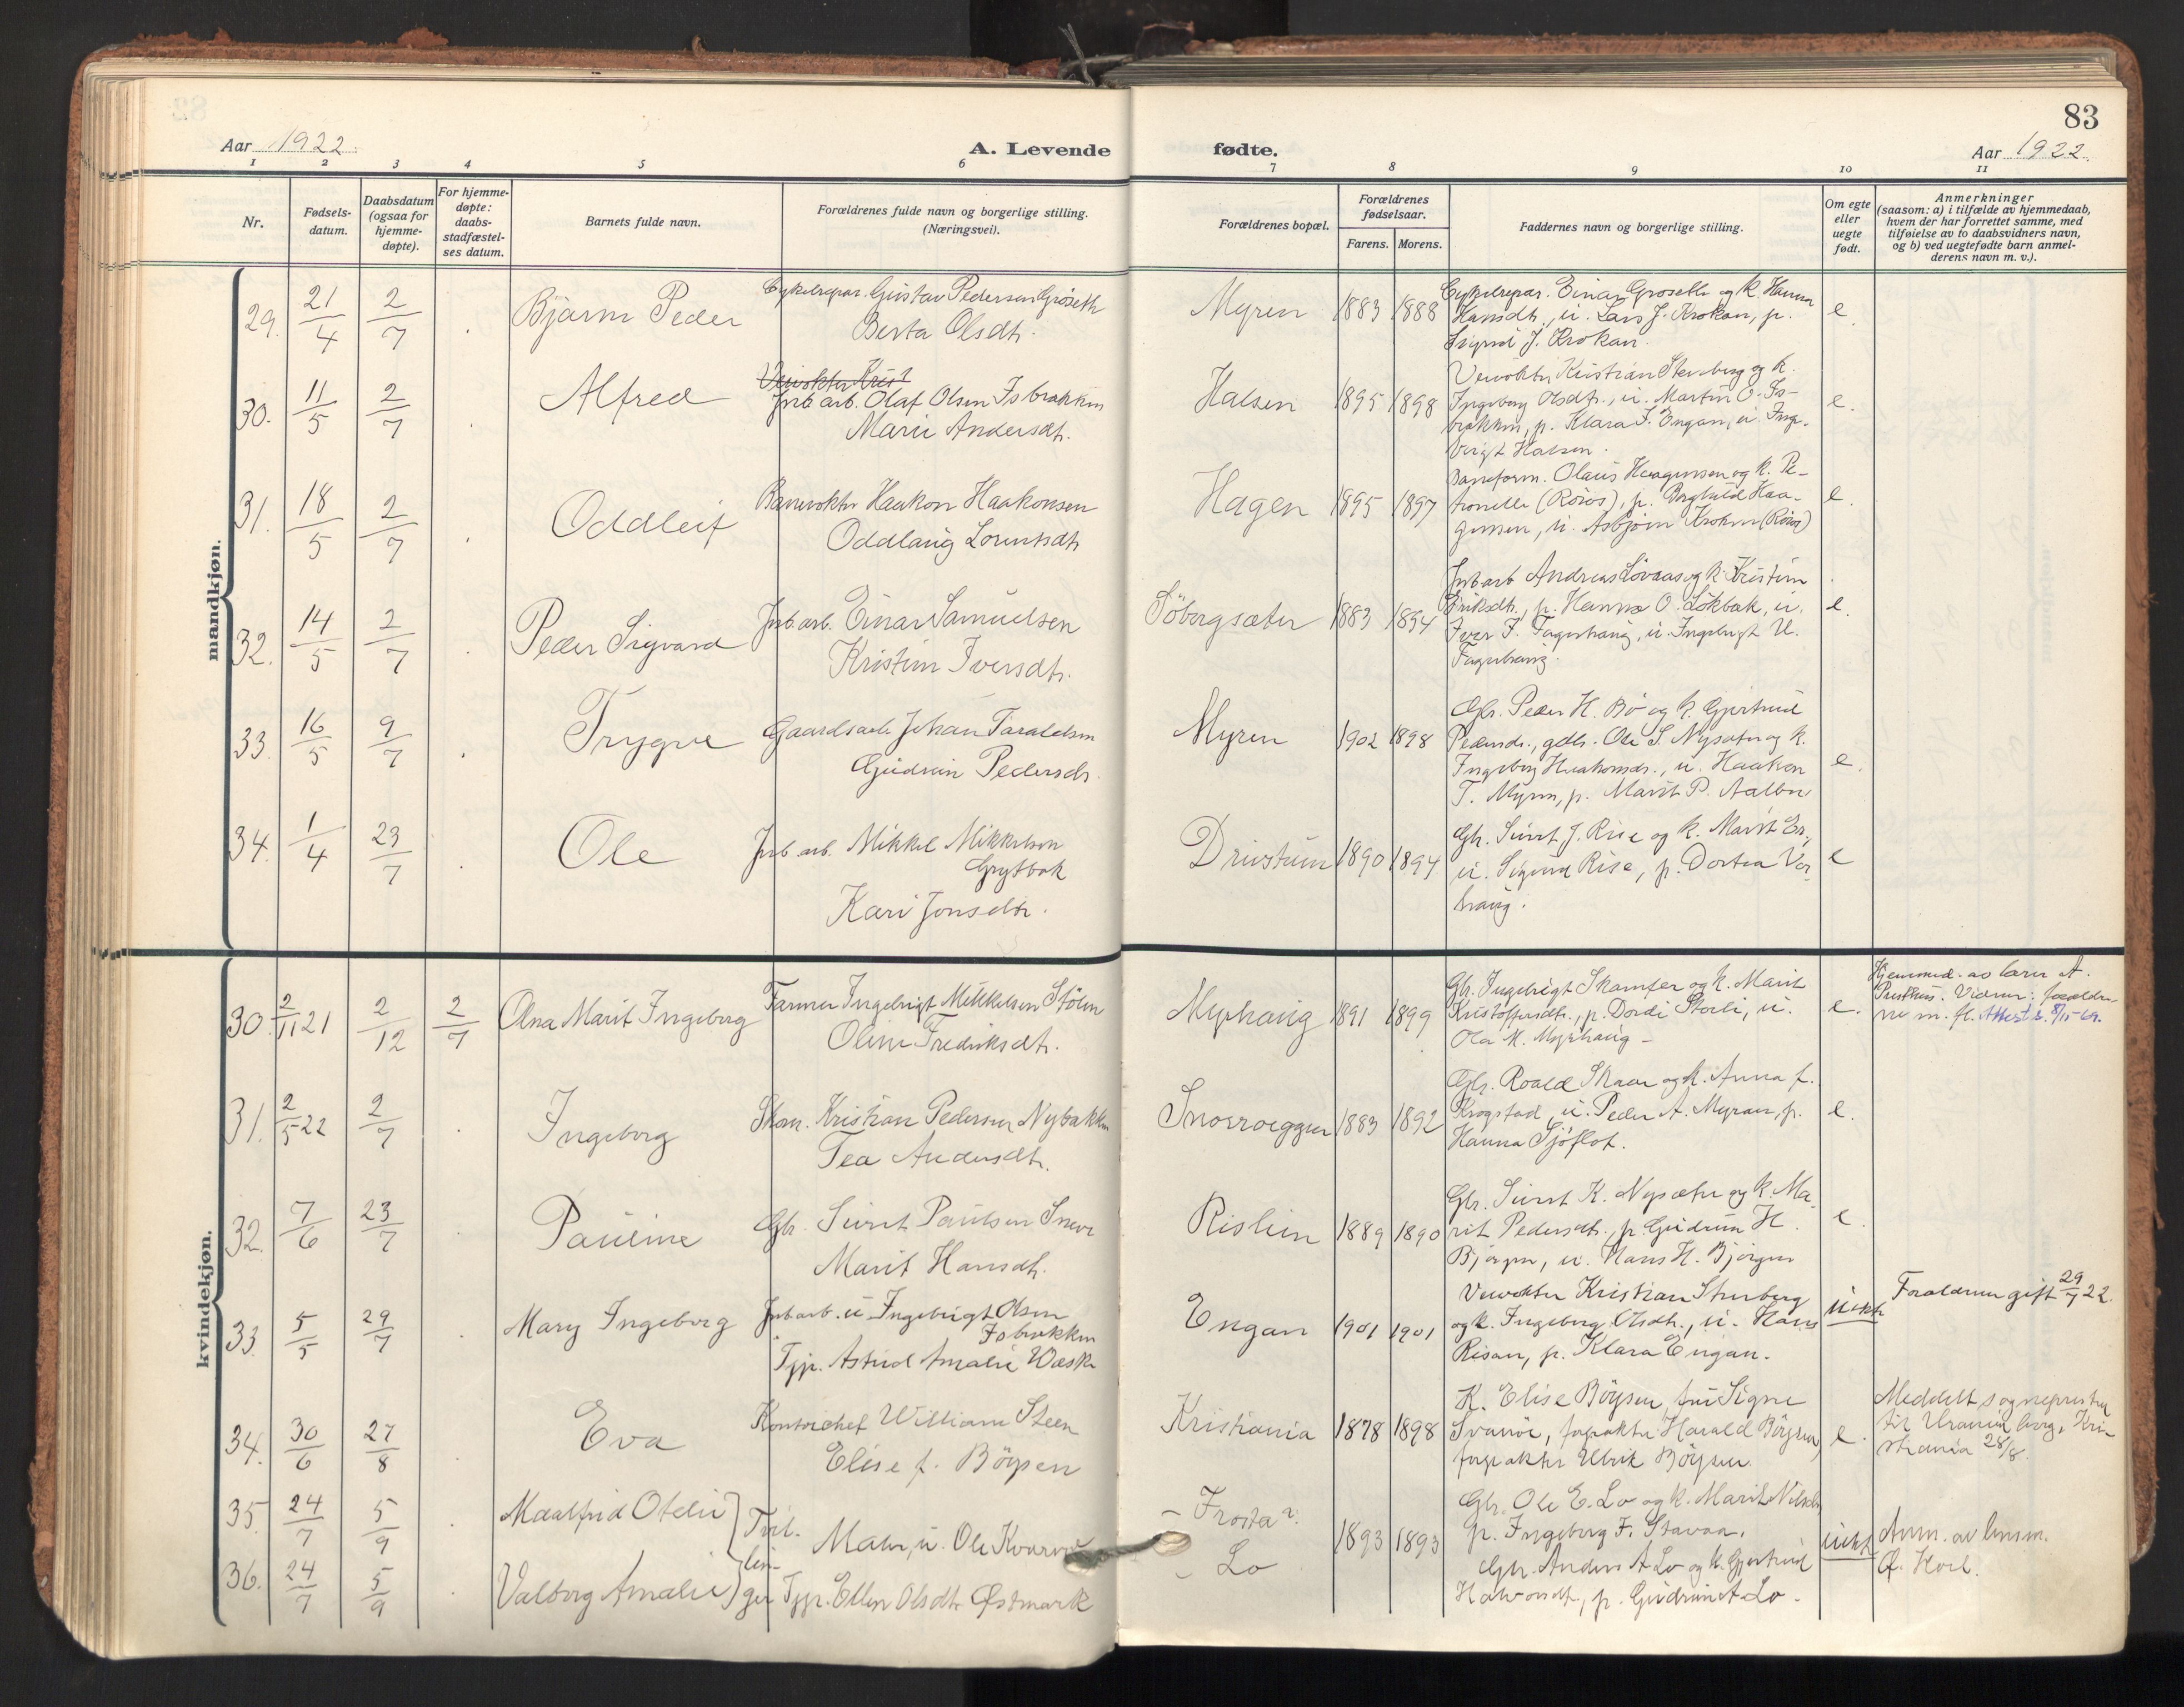 83
Aar 1922.
A. Levende
fødte.
Aar 1922.
1 2 3 4 5 6 7 8 9 10 11
Nr.
Fødsels-
datum.
Daabsdatum
(ogsaa for
hjemme-
døpte).
For hjemme-
døpte:
daabs-
stadfæstel-
ses datum.
Barnets fulde navn.
Forældrenes fulde navn og borgerlige stilling.
(Næringsvei).
Forældrenes bopæl.
Forældrenes
fødselsaar.
Farens. Morens.
Faddernes navn og borgerlige stilling.
Om egte
eller
uegte
født.
Anmerkninger
(saasom: a) i tilfælde av hjemmedaab,
hvem der har forrettet samme, med
tilføielse av to daabsvidners navn,
og b) ved uegtefødte barn anmel-
derens navn m. v.).
mandkjøn.
29. 21/4 2/7 Bjarne Peder
Cykelrepar. Gustav Pedersen Gröseth
Berta Olsdtr.
Myren 1883 1888
Cykelrepar. Einar Groseth og k. Hanna
Hansdtr., u. Lars J. Krokan, p.
Sigrid J. Krokan.
e.
30. 11/5 2/7 Alfred
Veivokter Krist
Jrb. arb. Olaf Olsen Isbrekken
Marie Andersdtr.
Halsen 1895 1898
Veivokter Kristian Stenberg og k.
Ingeborg Olsdtr., u. Martin O. Is-
brekken, p. Klara J. Engan, u. Inge-
brigt Halsen.
e.
31. 18/5 2/7 Oddleif
Banevokter Haakon Haakonsen
Oddlaug Lorentsdtr.
Hagen 1895 1897
Baneform. Olaus Haagensen og k. Pe-
tronelle (Röros), p. Borghild Haa-
gensen, u. Asbjörn Kroken (Röros)
e.
32. 14/5 2/7 Peder Sigvard
Jrb. arb. Einar Samuelsen
Kristine Iversdtr.
Söbergsæter 1883 1894
Jrb arb Andreas Lövaas og k. Kristine
Eriksdtr., p. Hanna O. Lökbak, u.
Iver F. Fagerhaug, u. Ingebrigt U.
Fagerhaug.
e.
33. 16/5 9/7 Trygve
Gaardsarb. Johan Taraldsen
Gudrun Pedersdr.
Myren 1902 1898
Gbr. Peder H. Bö og k. Gjertrud
Pedersdr., gdbr. Ole S. Nysæter og k.
Ingeborg Haakonsdr., u. Haakon
T. Myren, p. Marit P. Aalbu
e.
34. 1/4 23/7 Ole
Jrb. arb. Mikkel Mikkelsen
Grytbak
Kari Jonsdtr.
Drivstuen 1890 1894
Gbr. Sivert J. Rise og k. Marit Er.,
u. Sigurd Rise, p. Dortea Vor-
haug.
e
kvindekjøn.
30. 2/11 21 2/12 2/7 Olna Marit Ingeborg
Farmer Ingebrigt Mikkelsen Stölen
Oline Fredriksdtr.
Myrhaug 1891 1899
Gbr. Ingebrigt Skamfer og k. Marit
Kristoffersdtr., p. Dordi Storli, u.
Ola M. Myrhaug -
e.
Hjemmed. av lærer A.
Presthus. Vidner: foreldre-
ne m. fl. Attest s. 8/11-69.
31. 2/5 22 2/7 Ingeborg
Skom. Kristian Pedersen Nybakken
Tea Andersdtr.
Snoeroeggen 1883 1892
Gbr. Roald Skaar og k. Anna f.
Krogstad, u. Peder A. Myran, p.
Hanna Sjöflot.
e.
32. 7/6 23/7 Pauline
Gbr. Sivert Paulsen Snoer
Marit Hansdtr.
Rislien 1889 1890
Gbr. Sivert K. Nysæter og k. Ma-
rit Pedersdtr., p. Gudrun H.
Bjørgen, u. Hans H. Bjørgen
e.
33. 5/5 29/7 Mary Ingeborg
Jrb arb. u. Ingebrigt Olsen
Isbrekken
Tjp. Astrid Amalie Wæsk
Engan 1901 1901
Veivokter Kristian Stenberg
og k. Ingeborg Olsdtr., u. Hans
Risan, p. Klara Engan.
uekte
Foreldrene gift 29/7 22.
34. 30/6 27/8 Eva
Kontorchef William Steen
Elise f. Böysen
Kristiania 1878 1898
K. Elise Böysen, frue Signe
Svanöe, forpakter Harald Böysen,
forpakter Ulrik Böysen.
e.
Meddelt sognepresten
til Uranienborg, Kri-
stiania 28/8.
35. 24/7 5/9 Maalfrid Otelie
36. 24/7 5/9 Valborg Amalie
Tvil-
lin-
ger
Maler, u. Ole
Tjp. Ellen Olsdtr. Østmark
- Frosta?
- Lo
1893 1893
Gbr. Ole E. Lo og k. Marit Nilsdtr,
p. Ingeborg F. Stavaa.
Gbr. Anders A Lo og k. Gjertrud
Halvorsdtr., p. Gudrun A Lo.
uekt
Anm. av lensm.
O. Hoel.